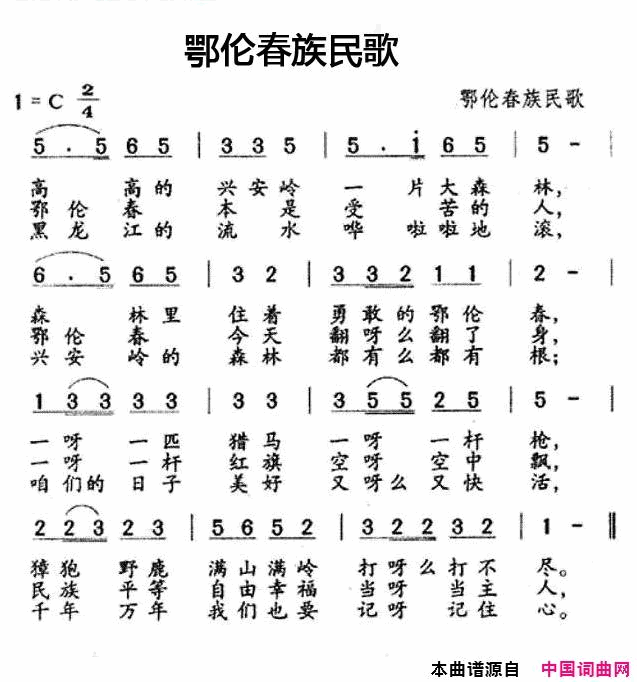 鄂伦春族民歌
1=C 2/4 鄂伦春族民歌
5 · 5 6 5 | 3 3 5 | 5 · i 6 5 | 5 - |
高 高的 兴安岭 一 片大森 林,
鄂伦春 本是 受 苦的 人,
黑龙江的 流水 哗啦啦地 滚,
6 · 5 6 5 | 3 2 | 3 3 2 1 1 | 2 - |
森 林里 住着 勇敢的鄂伦 春,
鄂伦春 今天 翻呀么翻了 身,
兴安岭的 森林 都有么都有 根;
1 3 3 3 3 | 3 3 | 3 5 5 2 5 | 5 - |
一呀 一匹 猎马 一呀 一杆 枪,
一呀 一杆 红旗 空呀 空中 飘,
咱们的 日子 美好 又呀么又快 活,
2 2 3 2 3 | 5 6 5 2 | 3 2 2 3 2 | 1 - ‖
獐狍 野鹿 满山满岭 打呀么打不 尽。
民族 平等 自由幸福 当呀 当主 人,
千年 万年 我们幸也要 记呀 记住 心。
本曲谱源自 中国词曲网